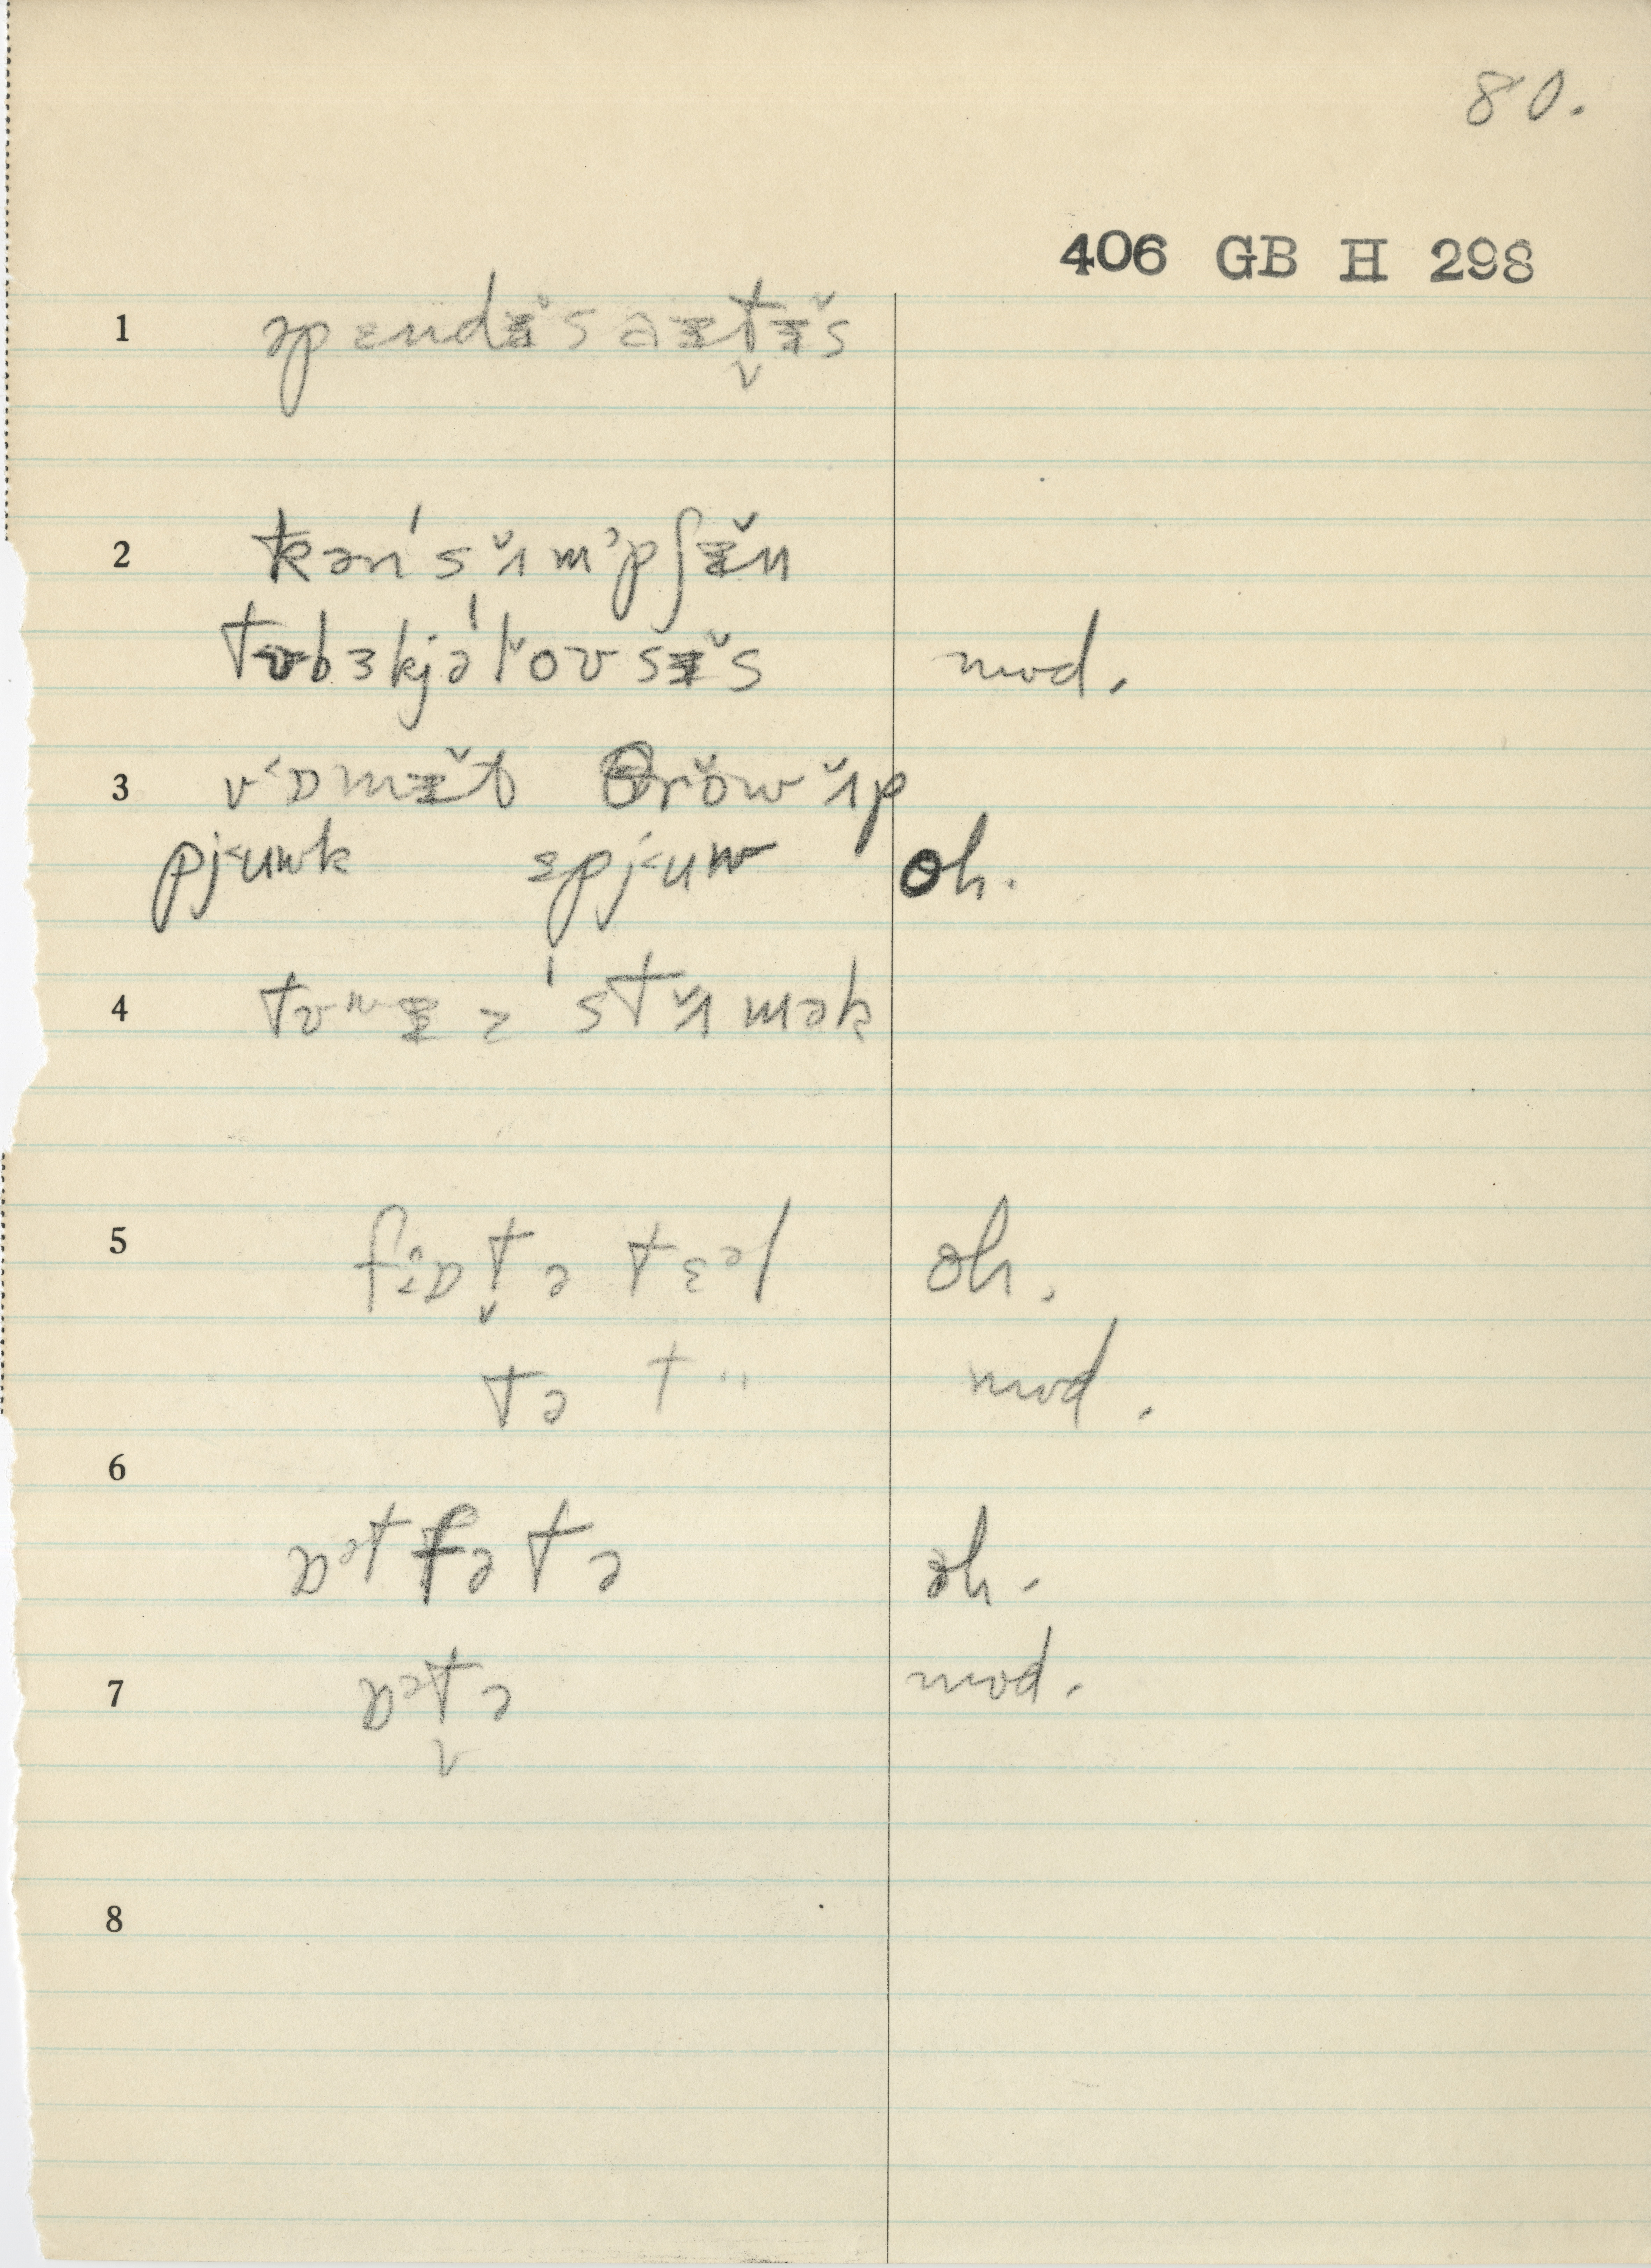 80.
406 GB H 298
1 əpɛndɨ̆s aɨt̬ɨ̆s
2 kən's ɪ̆ m'pʃɨ̆n
tʊbɜkjə'l ̆oʊsɨ̆s mod.
3 v<ɒmɨ̆t θrŏw ɪ̆p
pj<uwk spj<uw oh.
4 tʊwɨ z 'stɪ̆mək
5 fiɒt̬ə tɛəl oh.
tə t " mod.
6
ɒətfətə oh.
7 ɒət̬ə mod.
8